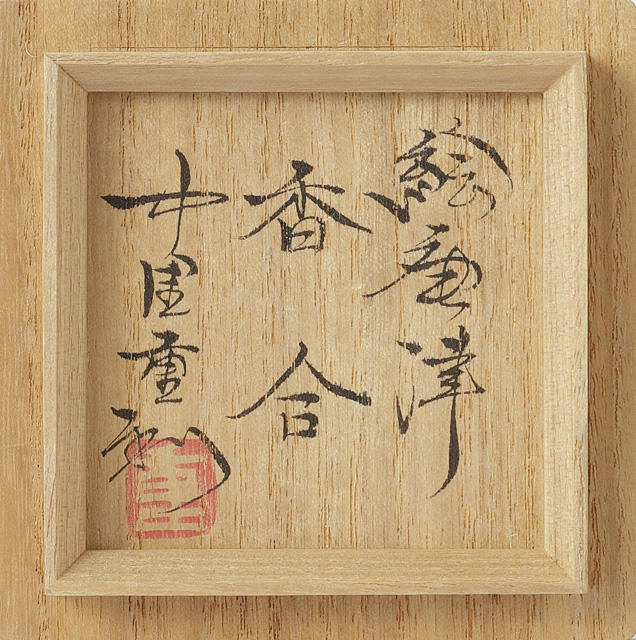 絵唐津
香合
中里重利